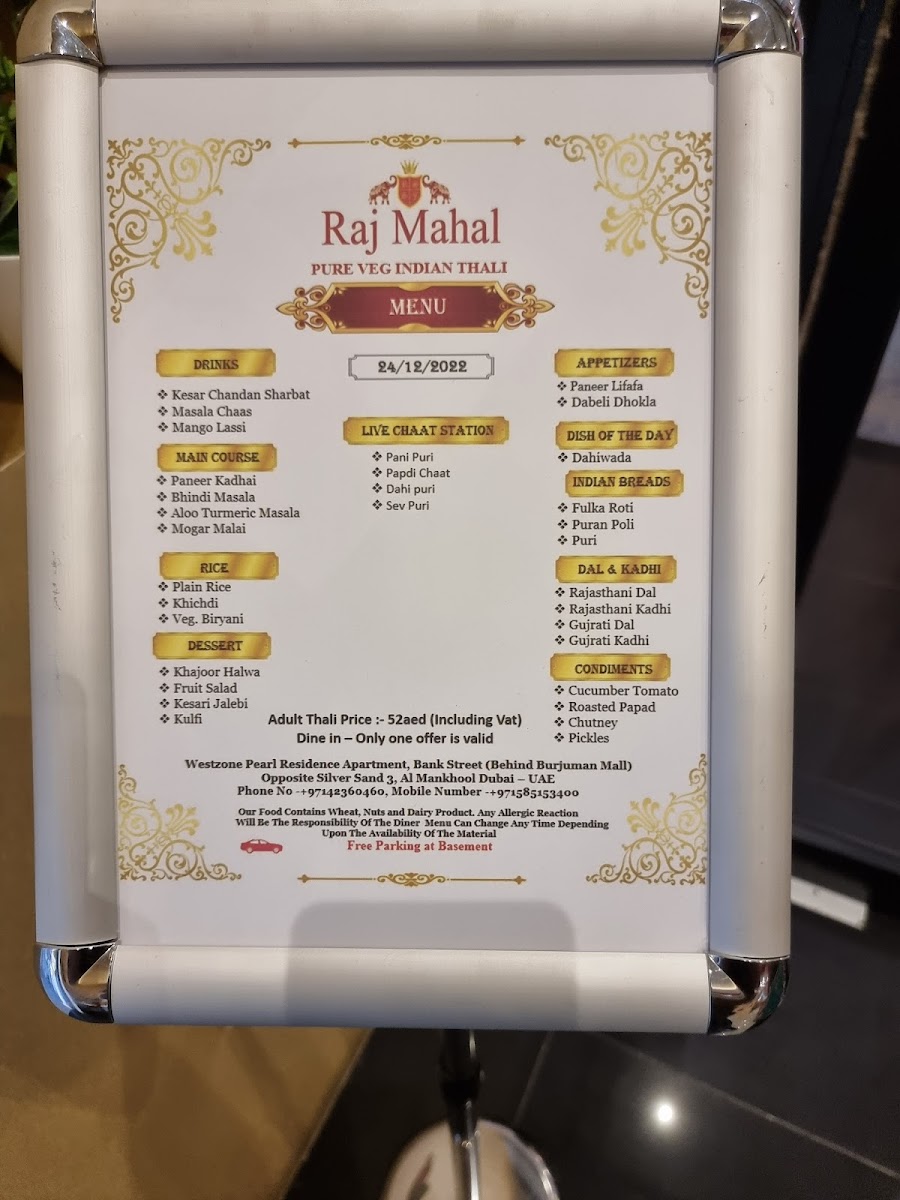 Raj Mahal
PURE VEG INDIAN THALI
MENU
24/12/2022
DRINKS
❖ Kesar Chandan Sharbat
❖ Masala Chaas
❖ Mango Lassi
MAIN COURSE
❖ Paneer Kadhai
❖ Bhindi Masala
❖ Aloo Turmeric Masala
❖ Mogar Malai
RICE
❖ Plain Rice
❖ Khichdi
❖ Veg. Biryani
DESSERT
❖ Khajoor Halwa
❖ Fruit Salad
❖ Kesari Jalebi
❖ Kulfi
LIVE CHAAT STATION
❖ Pani Puri
❖ Papdi Chaat
❖ Dahi puri
❖ Sev Puri
APPETIZERS
❖ Paneer Lifafa
❖ Dabeli Dhokla
DISH OF THE DAY
❖ Dahiwada
INDIAN BREADS
❖ Fulka Roti
❖ Puran Poli
❖ Puri
DAL & KADHI
❖ Rajasthani Dal
❖ Rajasthani Kadhi
❖ Gujrati Dal
❖ Gujrati Kadhi
CONDIMENTS
❖ Cucumber Tomato
❖ Roasted Papad
❖ Chutney
❖ Pickles
Adult Thali Price :- 52aed (Including Vat)
Dine in – Only one offer is valid
Westzone Pearl Residence Apartment, Bank Street (Behind Burjuman Mall)
Opposite Silver Sand 3, Al Mankhool Dubai – UAE
Phone No -+97142360460, Mobile Number -+971585153400
Our Food Contains Wheat, Nuts and Dairy Product. Any Allergic Reaction
Will Be The Responsibility Of The Diner Menu Can Change Any Time Depending
Upon The Availability Of The Material
Free Parking at Basement